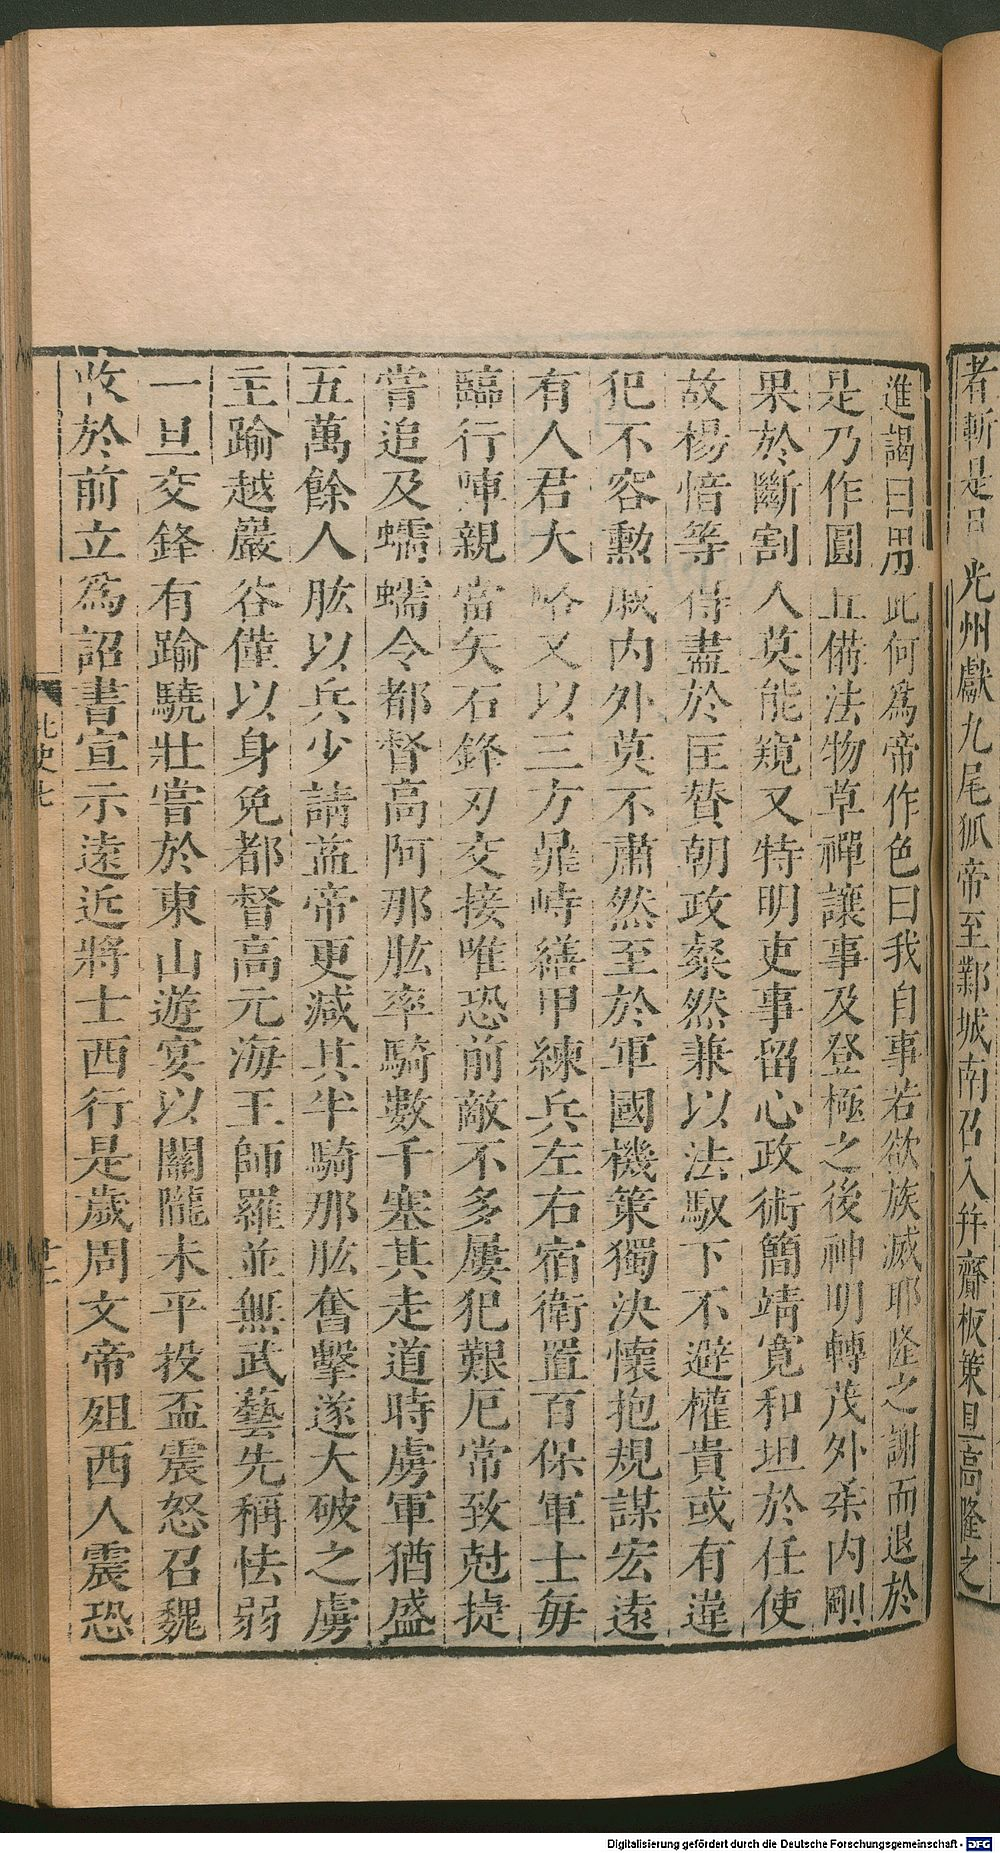 者斬是日光州獻九尾狐帝至鄴城南召入幷齎板策旦高隆之
進謁曰用此何爲帝作色曰我自事若欲族滅耶隆之謝而退於
是乃作圓丘備法物草禪讓事及登極之後神明轉茂外柔内剛
果於斷割人莫能窺又特明吏事留心政術簡靖寬和坦於任使
故楊愔等得盡於匡贊朝政粲然兼以法馭下不避權貴或有違
犯不容勳戚内外莫不肅然至於軍國機策獨決懷抱規謀宏遠
有人君大略又以三方鼎峙繕甲練兵左右宿衛置百保軍士每
臨行陣親當矢石鋒刃交接唯恐前敵不多屢犯艱厄常致尅捷
嘗追及蠕蠕令都督高阿那肱率騎數千塞其走道時虜軍猶盛
五萬餘人肱以兵少請益帝更減其半騎那肱奮擊遂大破之虜
主踰越巖谷僅以身免都督高元海王師羅並無武藝先稱怯弱
一旦交鋒有踰驍壯嘗於東山遊宴以關隴未平投盃震怒召魏
收於前立爲詔書宣示遠近將士西行是歲周文帝殂西人震恐
北史七
十二
Digitalisierung gefördert durch die Deutsche Forschungsgemeinschaft - DFG